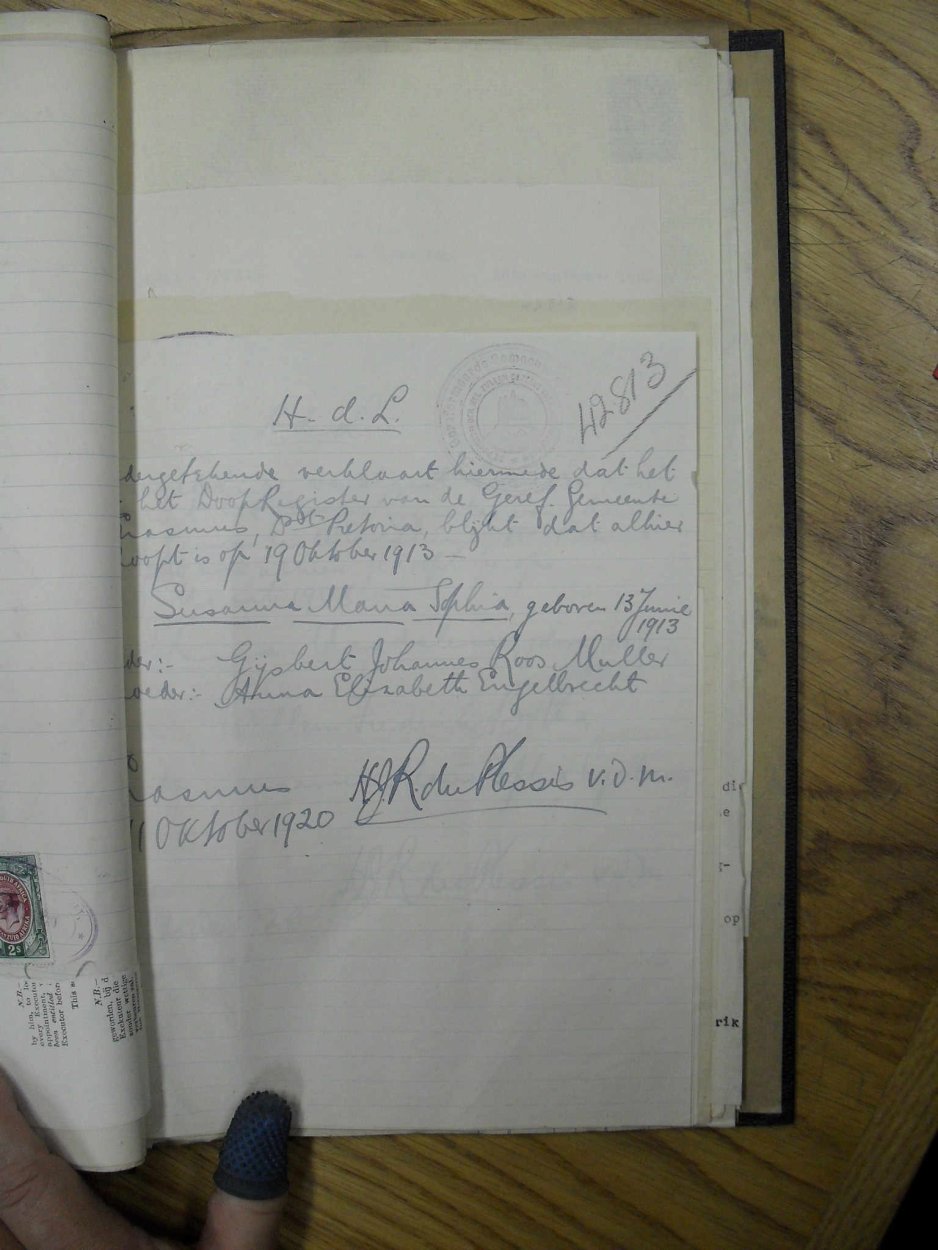 42813
H. d. L.
dergetekende verklaart hiermede dat het
het DoopRegister van de Geref. Gemeente
rasmus, Dist Pretoria, blijkt dat alhier
oopt is op 19 Oktober 1913 —
Susanna Maria Sophia, geboren 13 Junie
1913
der:- Gijsbert Johannes Roos Muller
oeder:- Anna Elizabeth Engelbrecht
rasmus HJR. du Plessis v.d.m.
1 Oktober 1920
di
e
op
rik
2s
N.B.—
by him, to
every Executor
appointment,
Executor before
This
N.B.—
geworden, bij d
Exekuteur die
zonder wettige